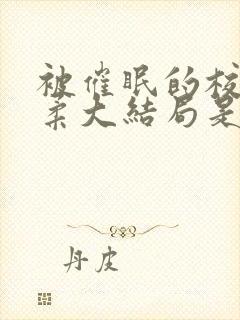 被催眠的校
柔大结局是
丹皮